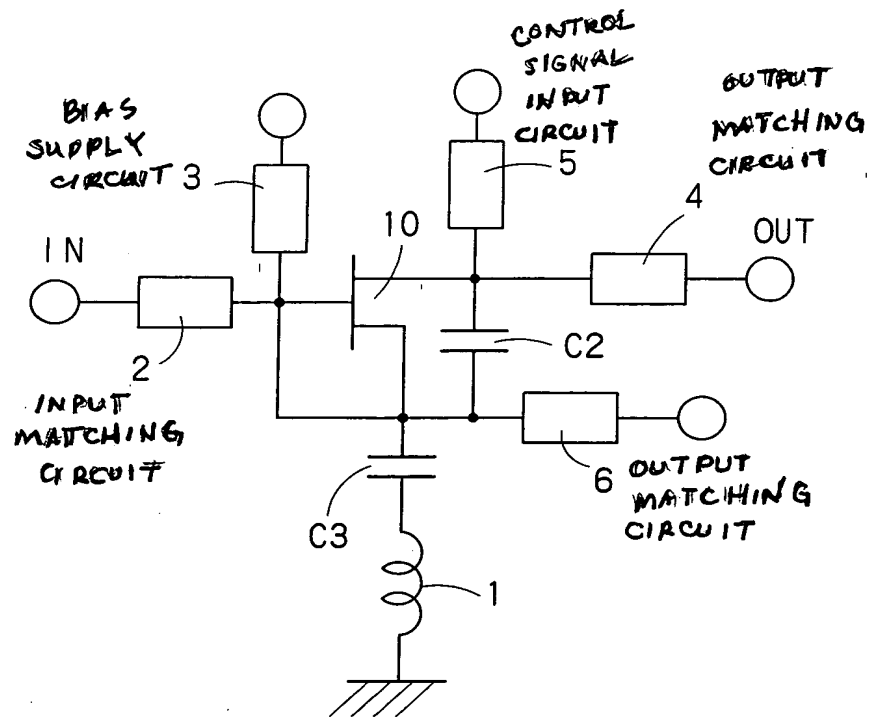 CONTROL
SIGNAL
INPUT
CIRCUIT
5
OUTPUT
MATCHING
CIRCUIT
4
BIAS
SUPPLY
CIRCUIT
3
10
IN
OUT
2
C2
INPUT
MATCHING
CIRCUIT
6
OUTPUT
MATCHING
CIRCUIT
C3
1